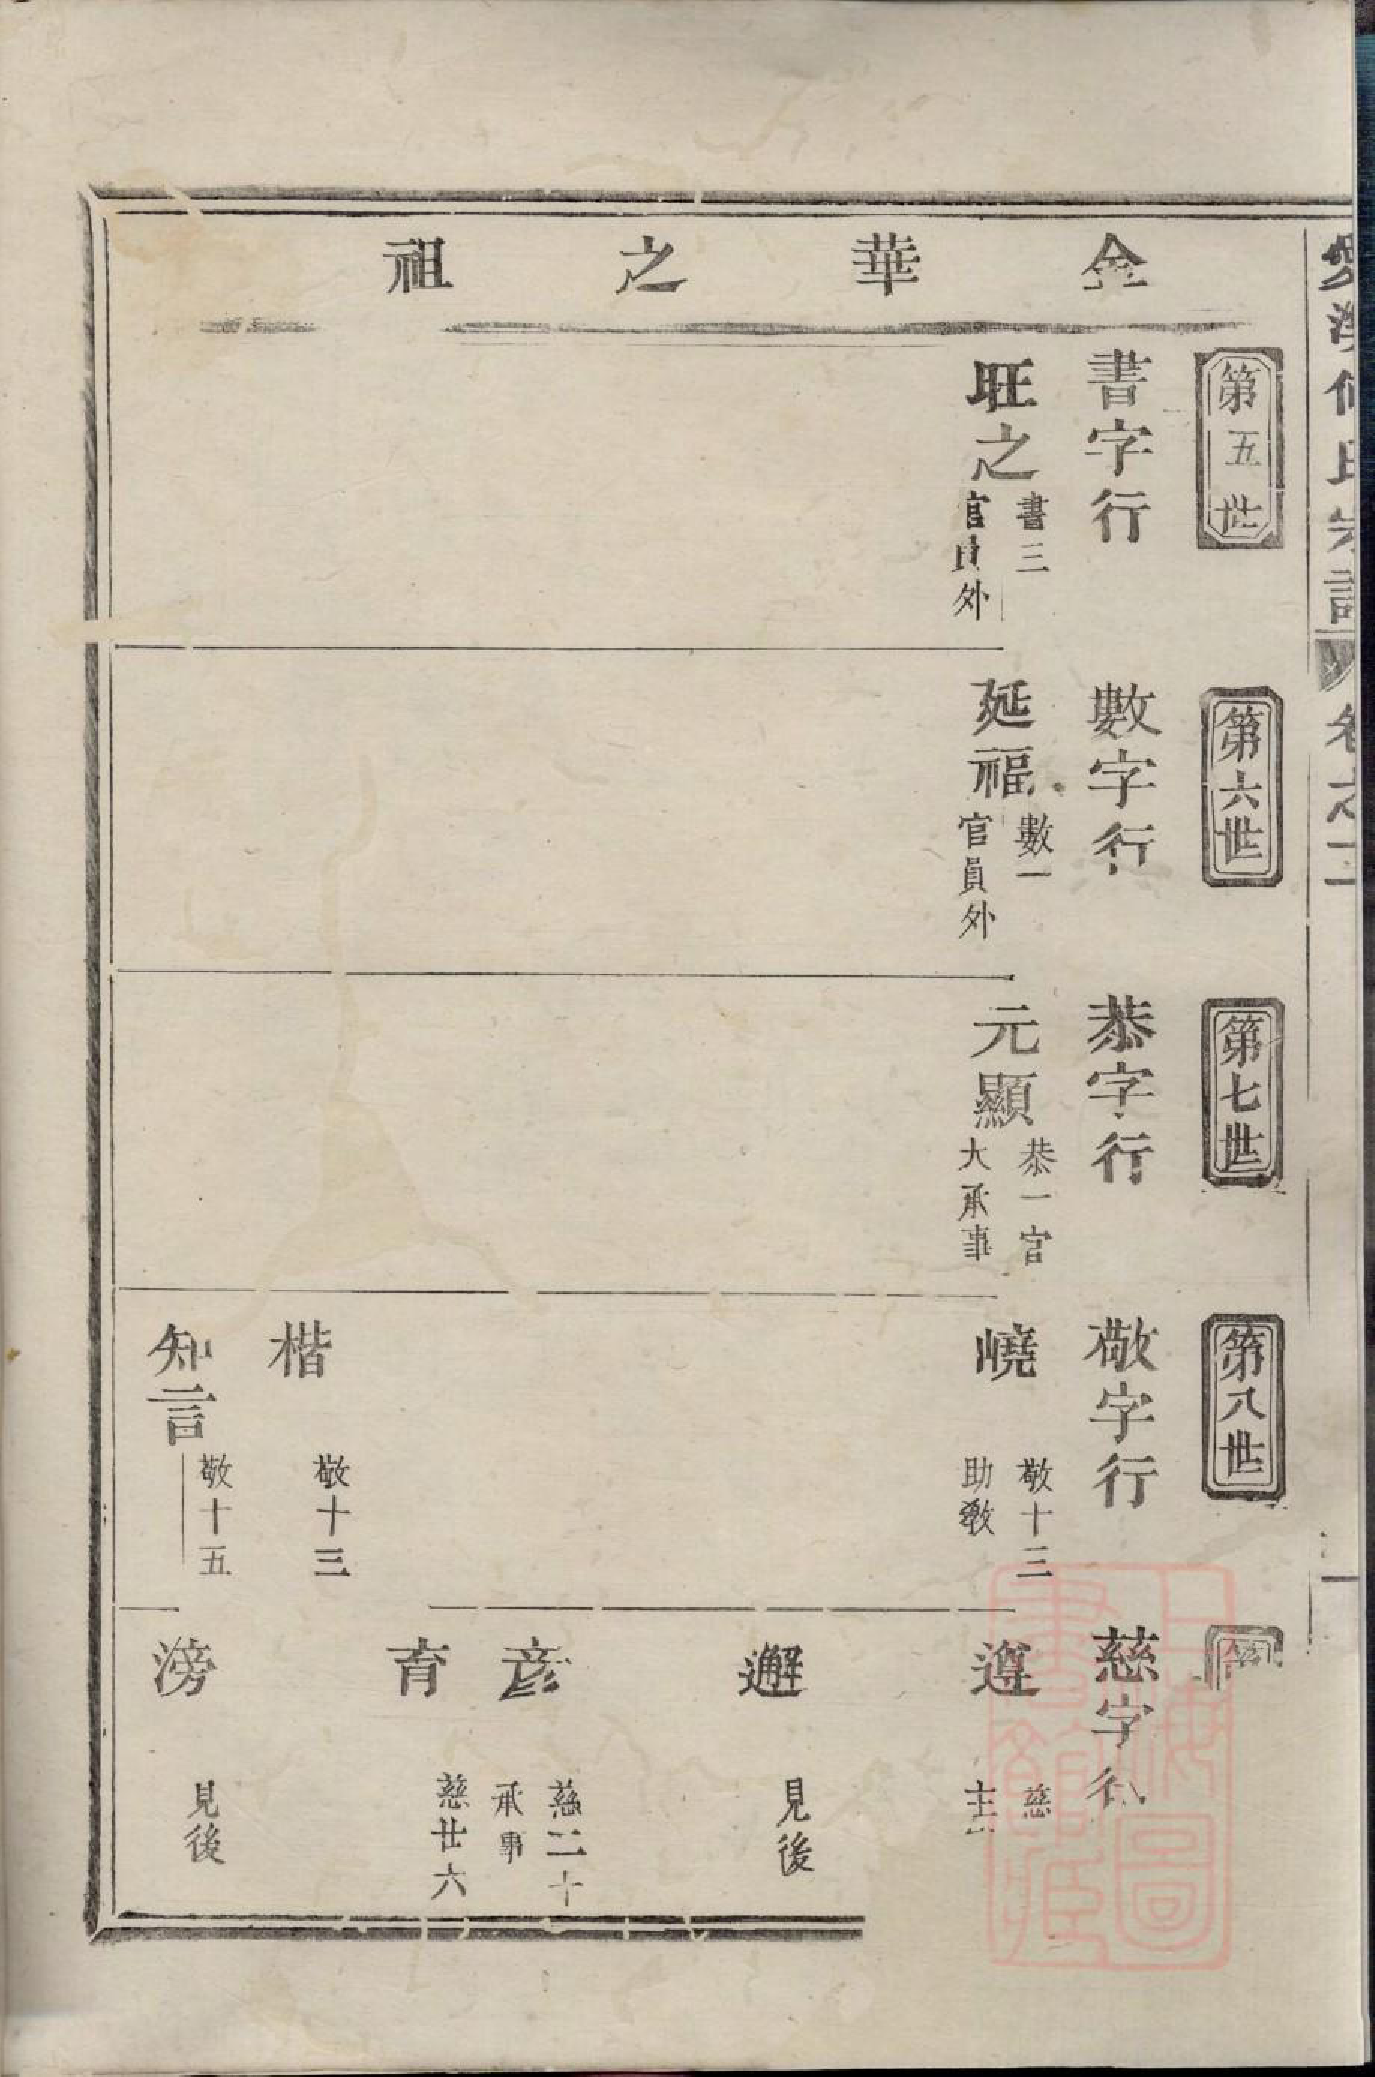 金華之祖
第五世
書字行
旺之
書三
官員外
第六世
數字行
延福
數一
官員外
第七世
恭字行
元顯
恭一官
大承事
第八世
敬字行
嶢
敬十三
助教
楷
敬十三
知言
敬十五
慈字行
遵
慈
邂
見後
彦
慈二十
承事
育
慈廿六
滂
見後
氏宗譜
卷之二
上海圖書館藏